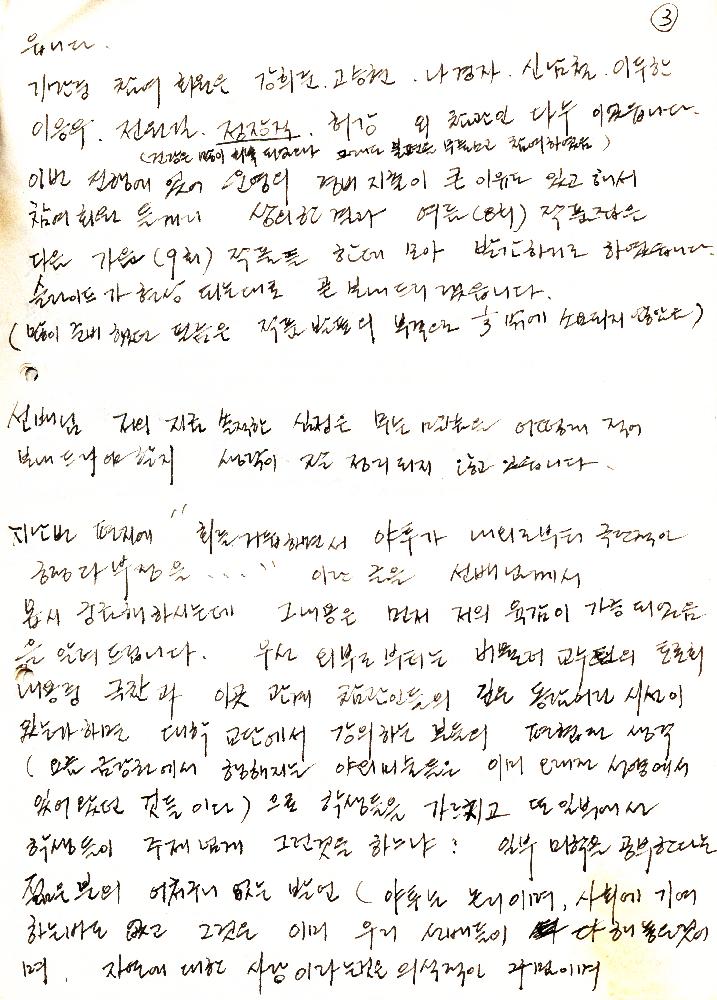 ③
읍니다.
기간중 참여 회원은 강희준. 고승현. 나경자. 신남철. 이두한
이응우. 전원길. 정장직. 허강 외 참관인 다수 이었읍니다.
이번 진행에 있어 운영의 경비 지출이 큰 이유도 있고 해서
참여 회원들께서 상의한 결과 여름(8회) 작품집은
다음 가을(9회) 작품들 한데 모아 발간하기로 하였읍니다.
슬라이드가 현상 되는대로 곧 보내드리겠읍니다.
(많이 준비 했었던 필름은 작품 발표의 부족으로 ⅓ 밖에 소요되지 않았음)
선배님 저의 지금 솔직한 심정은 무슨 말들을 어떻게 적어
보내드려야 할지 생각이 잘 정리되지 않고 있읍니다.
지난번 편지에 "회를 거듭하면서 야투가 내외로부터 극단적인
긍정과 부정을 . . . ." 이란 글을 선배님께서
몹시 궁금해 하시는데 그내용은 먼저 저의 육감이 가능 되었음
을 알려 드립니다. 우선 외부로부터는 교수님의 토론회
내용중 극찬과 이곳 관계 참관인들의 깊은 시선이
있는가 하면 대학 교단에서 강의하는 분들의 편협된 생각
(요즘 금강권에서 행해지는 야외미술들은 이미 오래전 서양에서
있어 왔던 것들이다)으로 학생들을 가르치고 또 일부에서
학생들이 주제넘게 그런것을 하느냐? 일부 미학을 공부한다는
젊은분의 어처구니 없는 발언(야투는 놀이이며, 사회에 기여
하는바도 없고 그것은 이미 우리 선배들이 다 해 놓은것이
며. 자연에 대한 사랑이라는것은 의식적인 과민이며